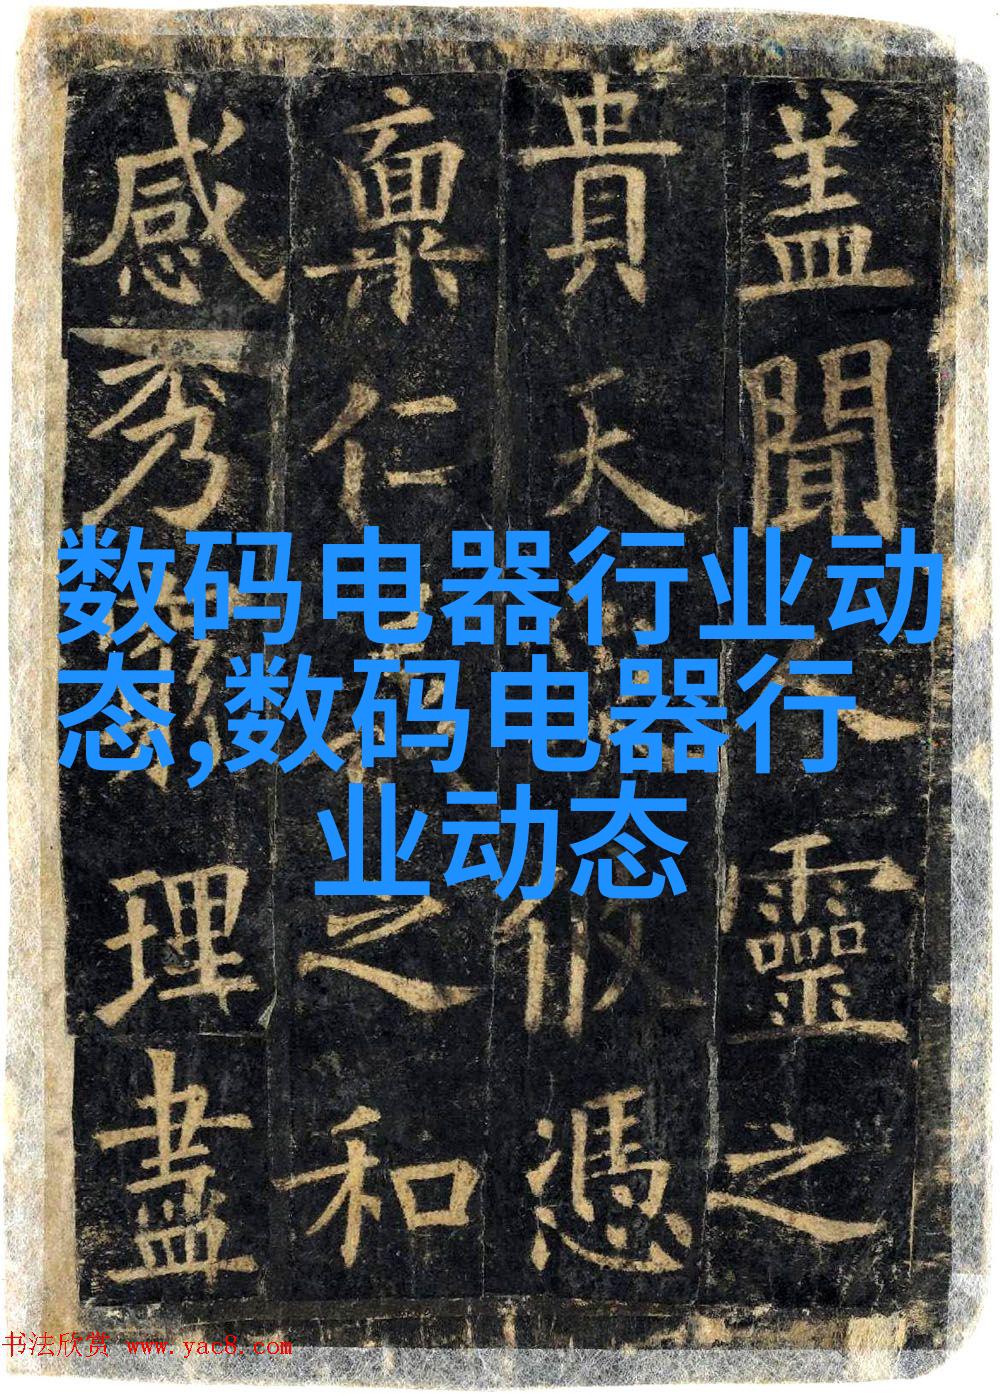 盖聞之靈之
貴天似憑
稟仁之和
感秀理盡
数码电器行业动
态,数码电器行
业动态
书法欣赏 www.yac8.com